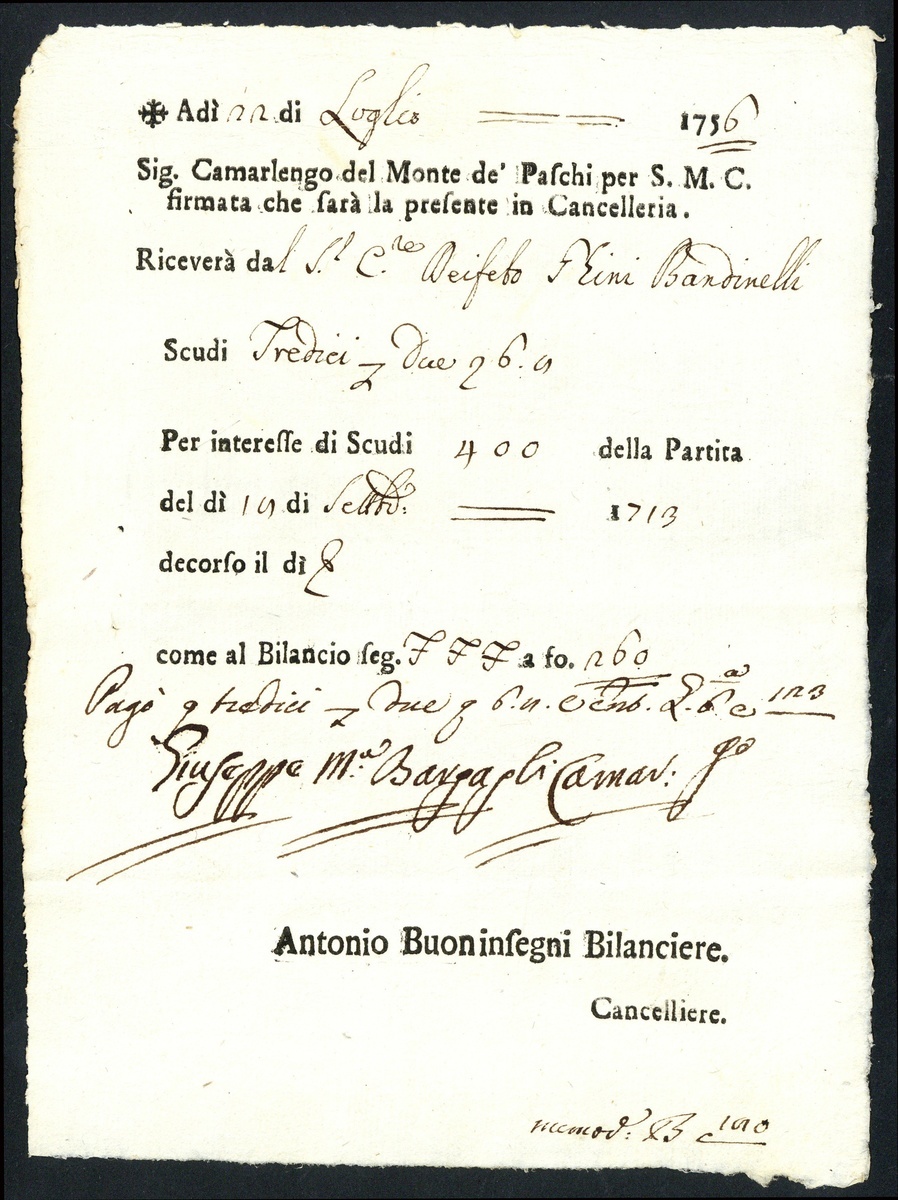 ✠ Adì 22 di Luglio 1756
Sig. Camarlengo del Monte de' Paſchi per S. M. C.
firmata che ſarà la preſente in Cancelleria.
Riceverà dal S.r C.re Deifebo Bandinelli
Scudi Tredici Due 6.
Per intereſſe di Scudi 400 della Partita
del dì di 1713
decorſo il dì
come al Bilancio ſeg. F F F a fo. 260
Pagò tredici due 6.
Giuseppe M.a Bargagli Camar:
Antonio Buoninſegni Bilanciere.
Cancelliere.